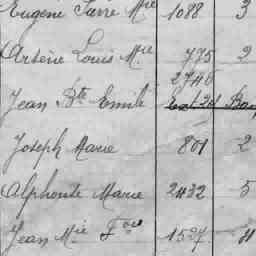 Eugène Pierre Mie 1088 3
Arsène Louis Mie 775 2
2746
Jean Bte Emile
Joseph Marie 801 2
Alphonse Marie 2432 5
Jean Mie Fois 1527 4